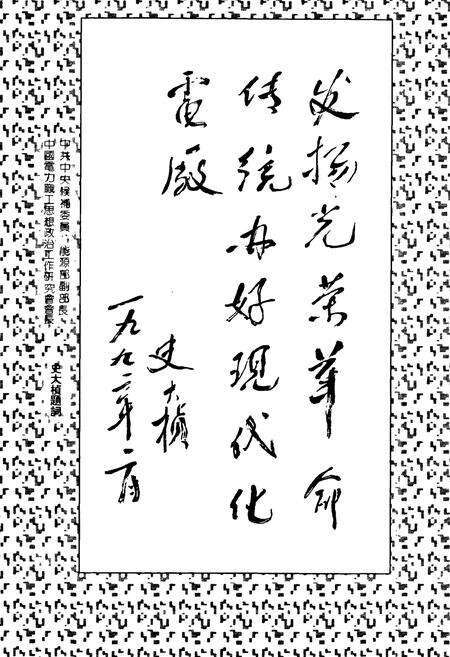 发扬光荣革命
传统办好现代化
電厰
史大桢
一九九二年二月
中共中央候補委員、能源部副部長、
中國電力職工思想政治工作研究會會長
史大楨題詞